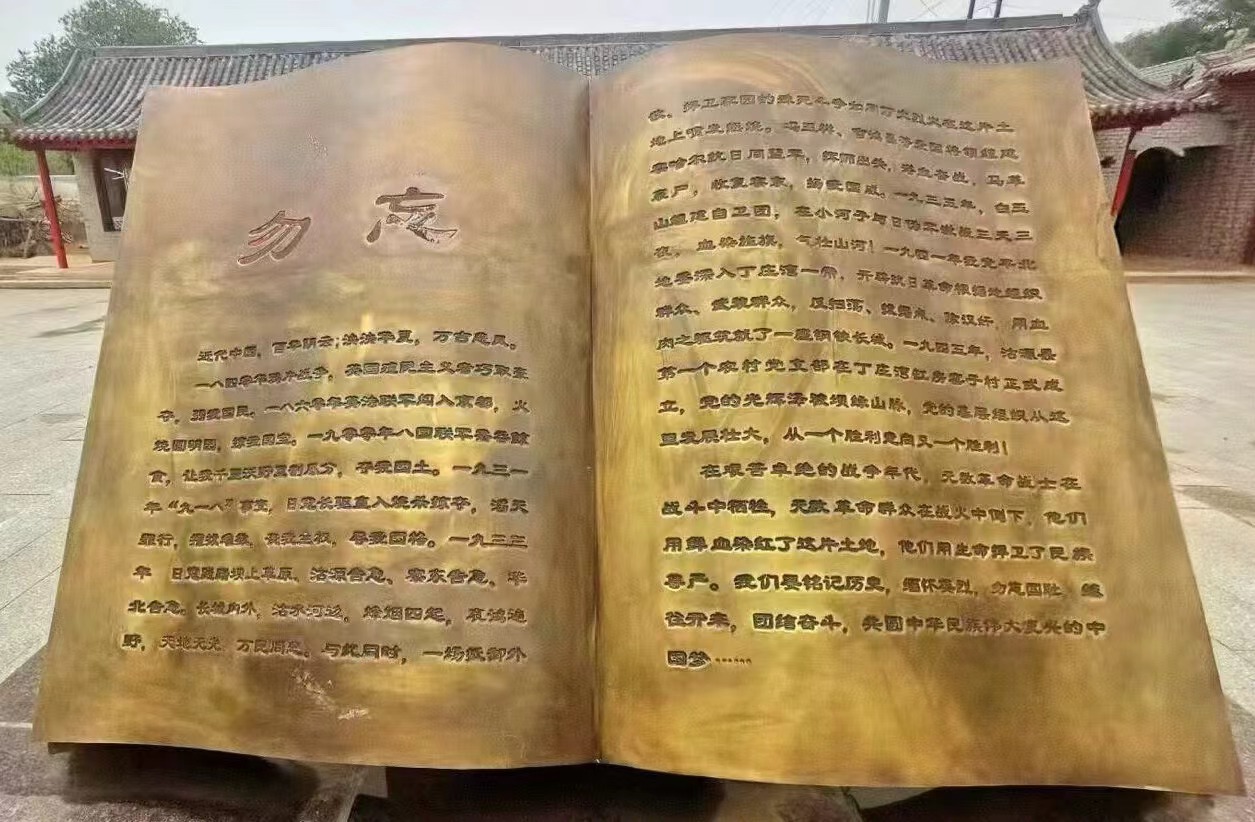 勿忘
近代中国，百年阴云；泱泱华夏，万古悲风。
一八四零年鸦片战争，英国殖民主义者巧取豪
夺，弱我国民。一八六零年英法联军闯入京都，火
烧圆明园，掠我国宝。一九零零年八国联军蚕食鲸
食，让我千里沃野豆剖瓜分，夺我国土。一九三一
年“九一八”事变，日寇长驱直入烧杀掠夺，滔天
罪行，罄竹难数，丧我主权，辱我国格。一九三三
年 日寇践踏坝上草原，沽源告急，察东告急，华
北告急。长城内外，沽水河边，烽烟四起，哀鸿遍
野，天地无光 万民同悲。与此同时，一场抵御外
敌，捍卫家园的殊死斗争如同万火烈火在这片土
地上喷发燃烧。冯玉祥、吉鸿昌等爱国将领组建
察哈尔抗日同盟军，挥师出关，浴血奋战，马革
裹尸，收复察东，扬我国威。一九三三年，白玉
山组建自卫团，在小河子与日伪军激战三天三
夜，血染旌旗，气壮山河！一九四一年我党平北
地委深入丁庄湾一带，开辟抗日革命根据地组织
群众、武装群众，反扫荡、端据点、除汉奸，用血
肉之躯筑就了一座钢铁长城。一九四五年，沽源县
第一个农村党支部在丁庄湾红房窑子村正式成
立，党的光辉泽被坝缘山脉，党的基层组织从这
里发展壮大，从一个胜利走向又一个胜利！
在艰苦卓绝的战争年代，无数革命战士在
战斗中牺牲，无数革命群众在战火中倒下，他们
用鲜血染红了这片土地，他们用生命捍卫了民族
尊严。我们要铭记历史，缅怀英烈，勿忘国耻 继
往开来，团结奋斗，共圆中华民族伟大复兴的中
国梦……